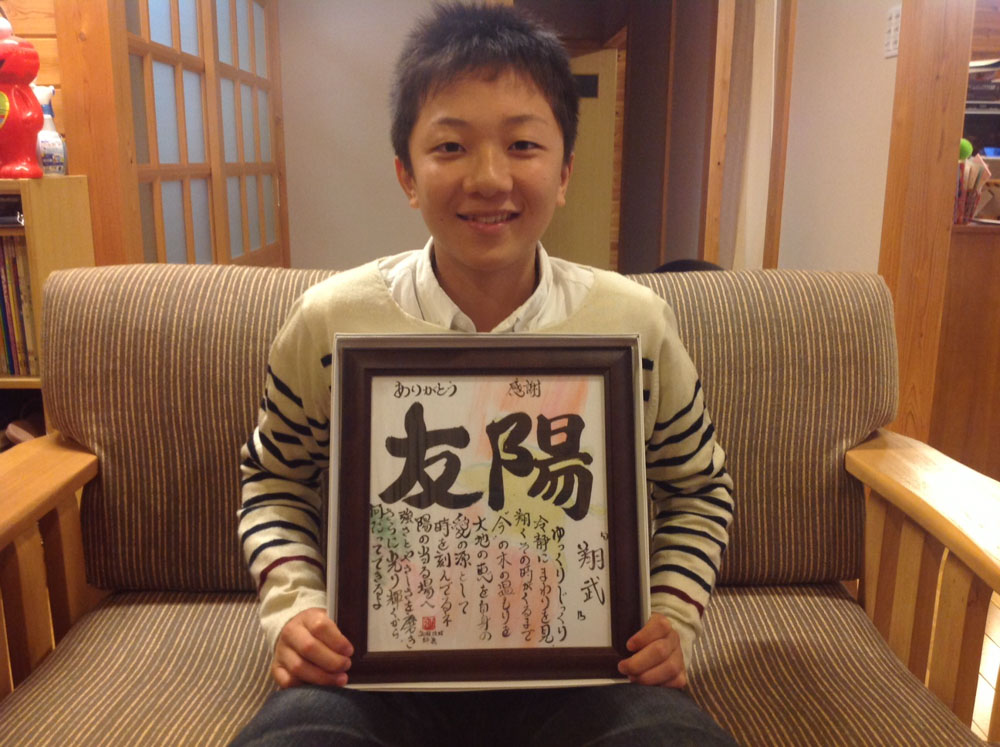 感謝
ありがとう
陽友
翔武
ゆっくりじっくり
冷静にまわりを見
翔くその時がくるまで
今の木の温もりを
大地の恵を自身の
愛の源として
時を刻んでる
陽の当る場へ
強さとやさしさを磨き
さらに光り輝くから
何だってできるよ